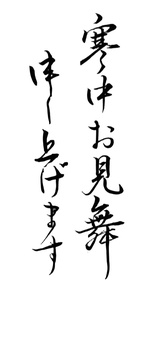 寒中お見舞
申し上げます